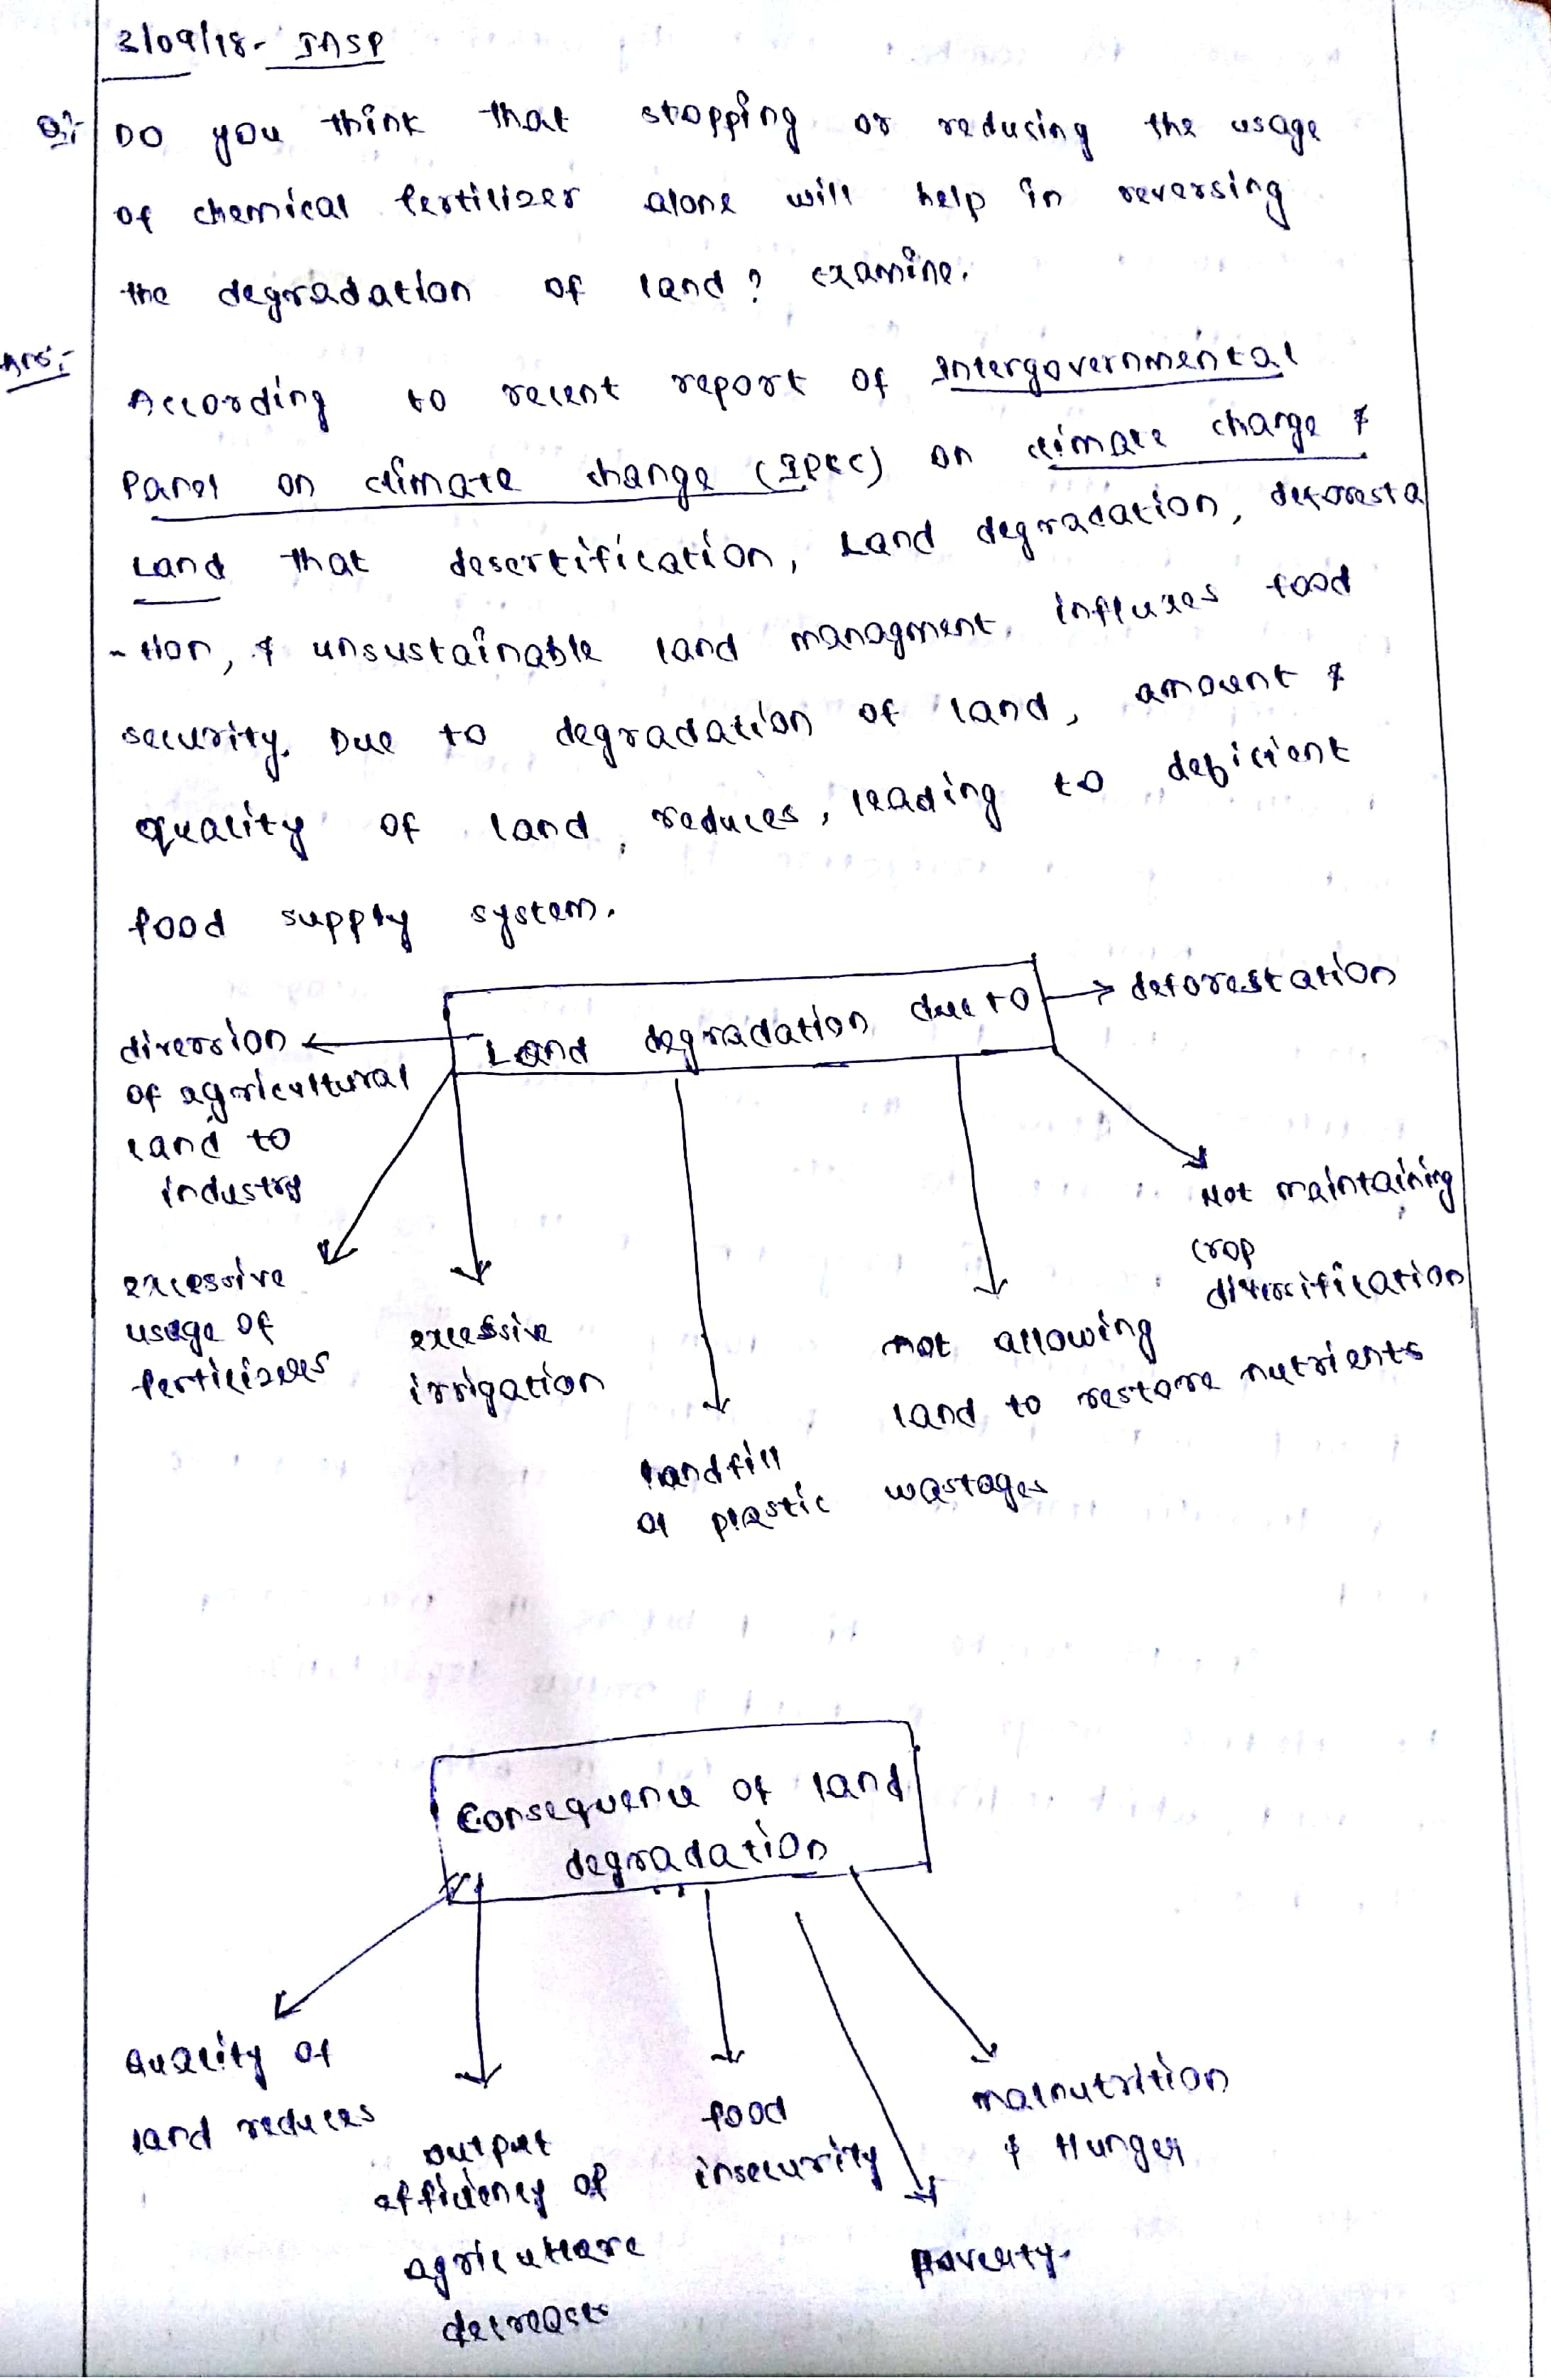 2/09/18- IASP
Q:- Do you think that stopping or reducing the usage
of chemical fertilizer alone will help in reversing
the degradation of land? Examine.
Ans:-
According to recent report of Intergovernmental
Panel on climate change (IPCC) on climate change &
Land that desertification, Land degradation, deforesta
-tion, & unsustainable land managment, influxes food
security. Due to degradation of land, amount &
quality of land, reduces, leading to deficient
food supply system.
Land degradation due to
deforestation
diversion
of agricultural
land to
industry
Not maintaining
crop
diversification
excessive
usage of
fertilizers
excessive
irrigation
not allowing
land to restore nutrients
landfill
of plastic wastages
Consequence of land
degradation
Quality of
land reduces
output
efficiency of
agriculture
decreases
food
insecurity
malnutrition
& Hunger
poverty.